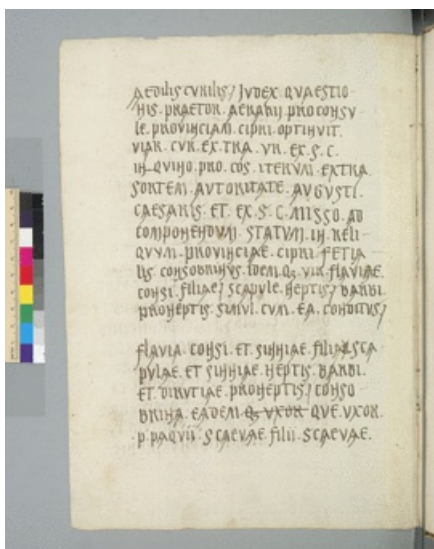 AEDILIS CVRILIS / JVDEX . QVAESTIO
NIS . PRAETOR . AERARIJ PROCONSV
LE . PROVINCIAM . CIPRI . OPTINVIT .
VIAR . CVR . EX . TRA . VR . EX . S . C .
IN QVINQ . PRO . COS . ITERVM . EXTRA .
SORTEM . AVTORITATE . AVGVSTI .
CAESARIS . ET . EX . S . C . MISSO . AD
COMPONENDVM . STATVM . IN . RELI
QVVM . PROVINCIAE . CIPRI . FETIA
LIS . CONSOBRINVS . IDEM . Q . VIR . FLAVIAE .
CONSI . FILIAE / SCAPVLE . NEPTIS / BARBI
PRONEPTIS . SIMVL . CVM . EA . CONDITVS /
FLAVIA . CONSI . ET . SINNIAE . FILIA / SCA
PVLAE . ET SINNIAE . NEPTIS . BARBI .
ET . DIRVTIAE . PRONEPTIS / CONSO
BRINA . EADEM . Q . VXOR QVE . VXOR .
P . PAQVII . SCAEVAE . FILII . SCAEVAE .